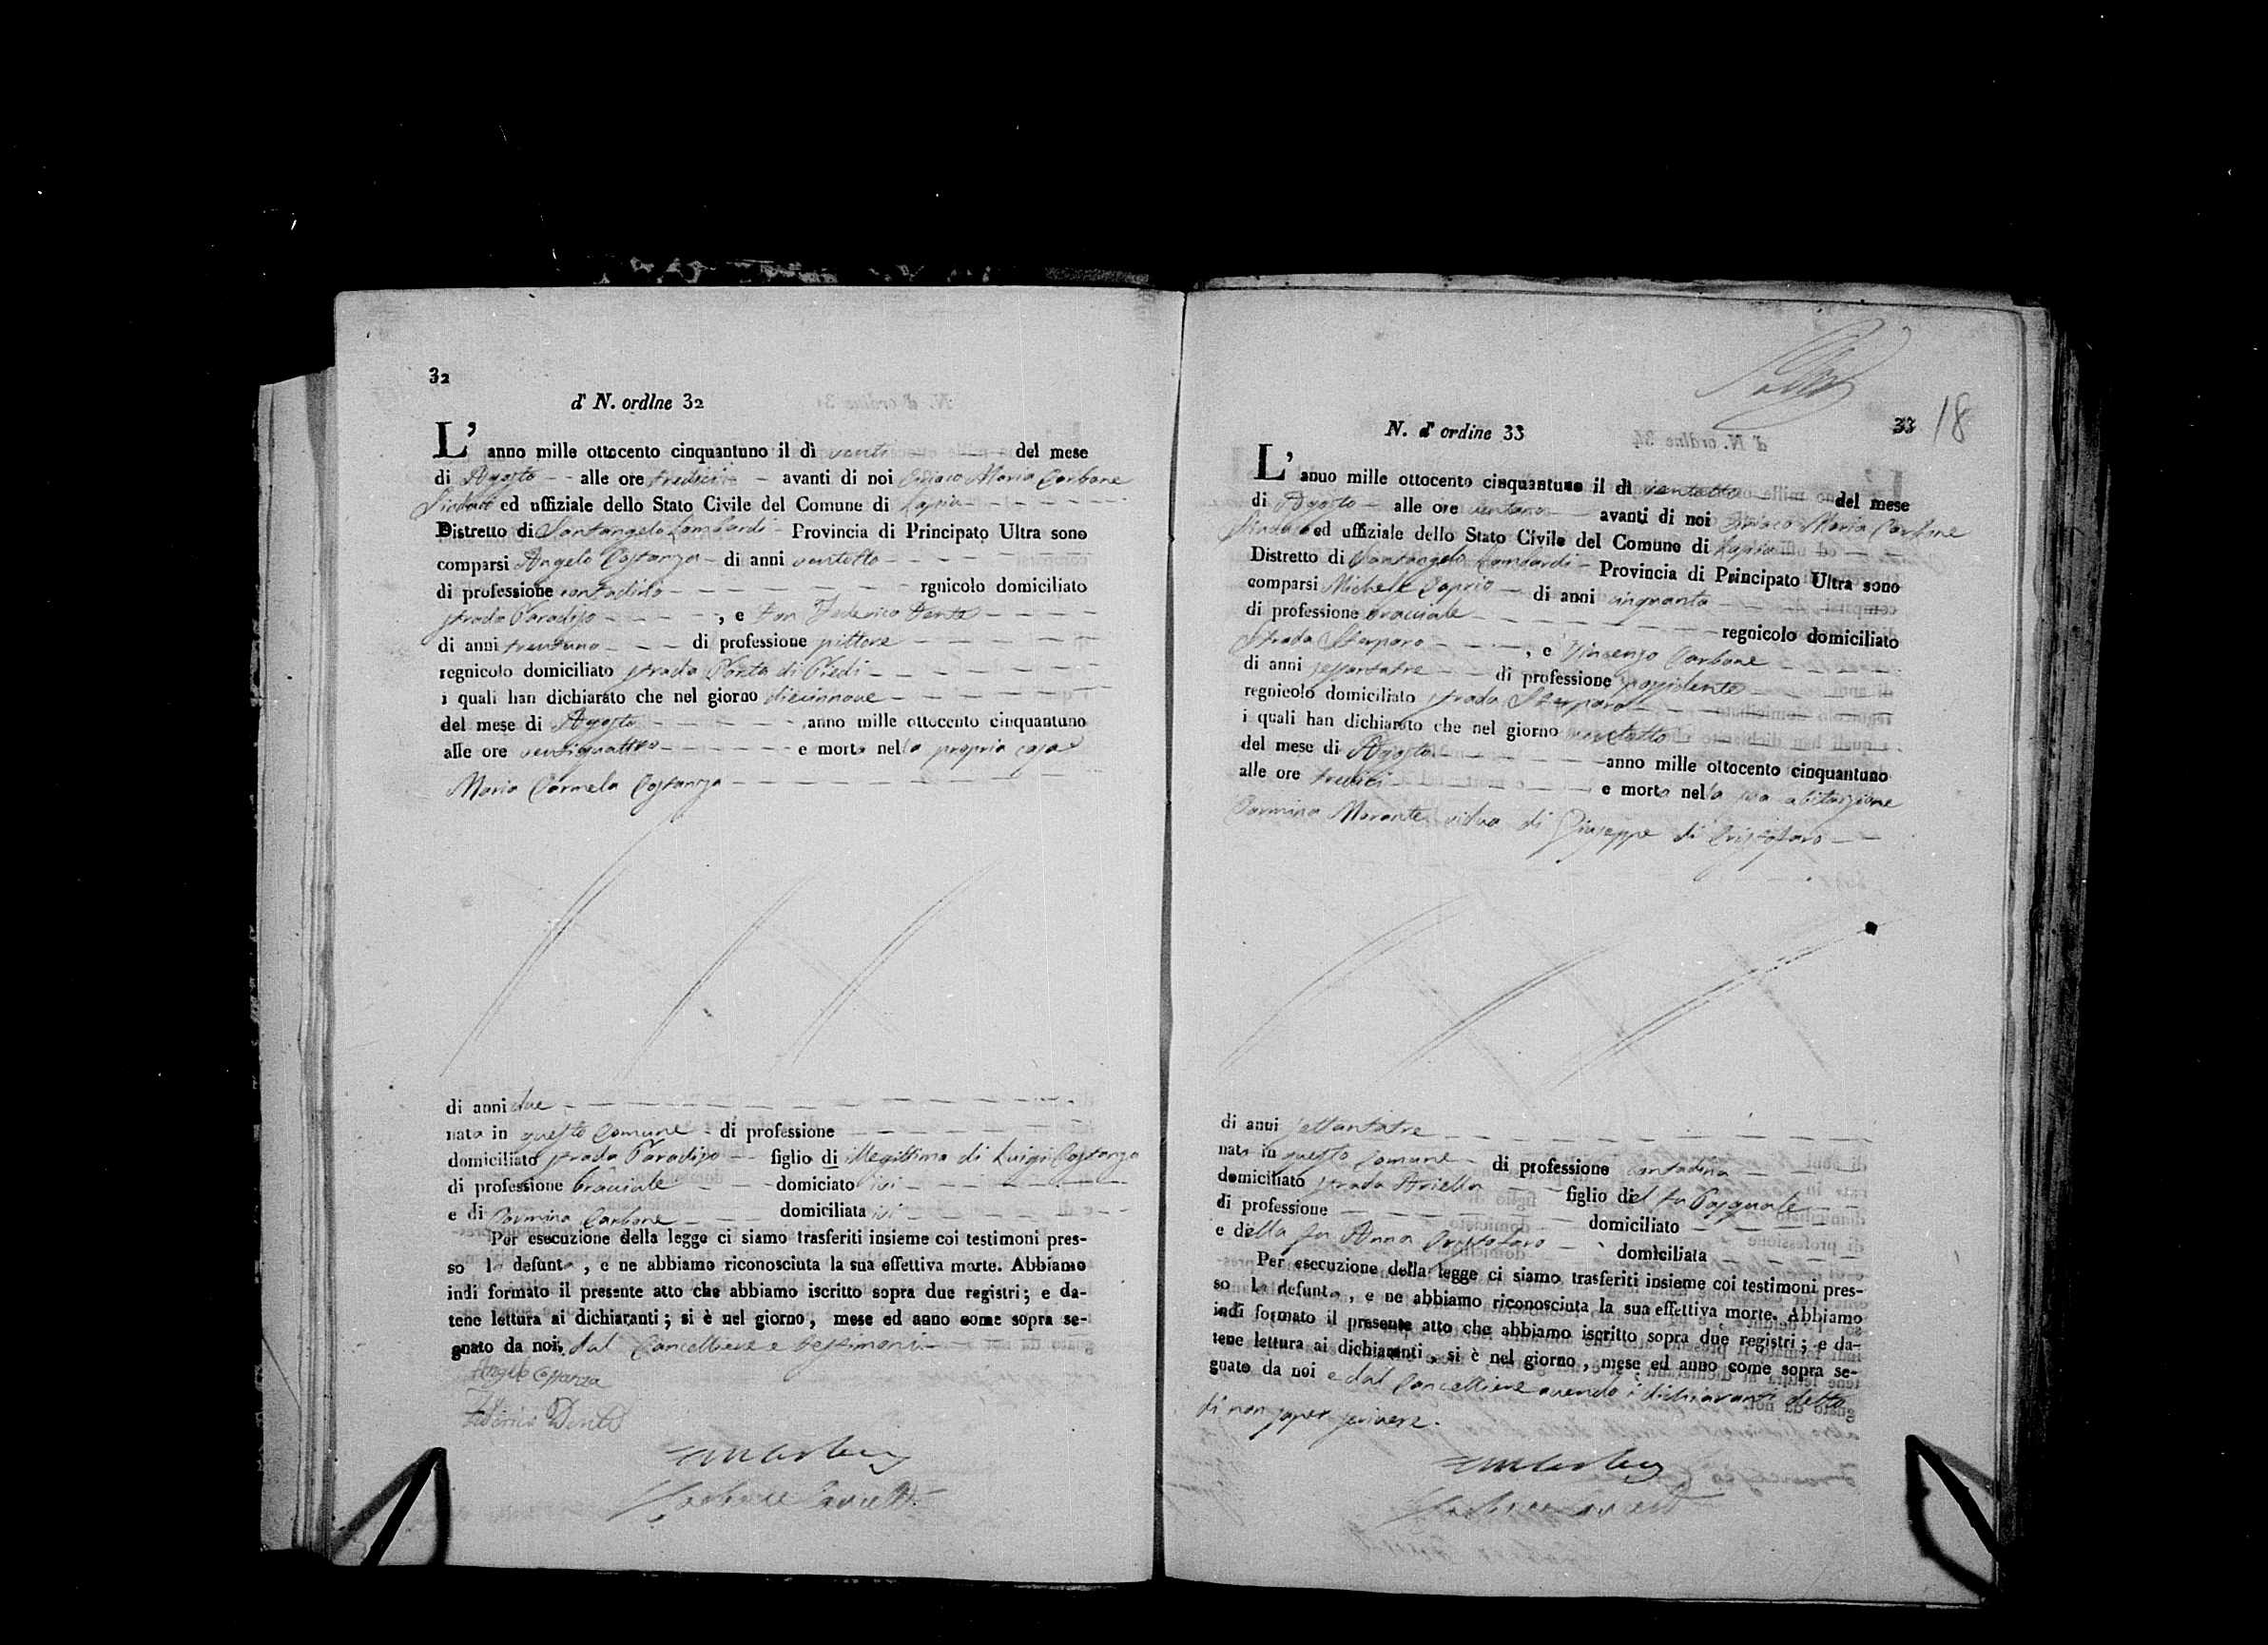 32
d' N. ordlne 32
L' anno mille ottocento cinquantuno il dì venti del mese
di Agosto alle ore tredici avanti di noi Ciriaco Maria Carbone
Sindaco ed uffiziale dello Stato Civile del Comune di Lapio
Distretto di Santangelo Lombardi Provincia di Principato Ultra sono
comparsi Angelo Costanza di anni ventotto
di professione contadino rgnicolo domiciliato
strada Paradiso , e Don Federico Dente
di anni trentuno di professione pittore
regnicolo domiciliato strada Porta di Piedi
i quali han dichiarato che nel giorno diecinnove
del mese di Agosto anno mille ottocento cinquantuno
alle ore ventiquattro e morta nella propria casa
Maria Carmela Costanza
di anni due
nata in questo Comune di professione
domiciliato strada Paradiso figlio di illegittima di Luigi Costanza
di professione bracciale domiciato ivi
e di Carmina Carbone domiciliata ivi
Per esecuzione della legge ci siamo trasferiti insieme coi testimoni pres-
so la defunta , e ne abbiamo riconosciuta la sua effettiva morte. Abbiamo
indi formato il presente atto che abbiamo iscritto sopra due registri; e da-
tene lettura ai dichiaranti; si è nel giorno, mese ed anno come sopra se-
gnato da noi, dal Cancelliere e testimoni
Angelo Costanza
Federico Dente
33
18
N. d' ordine 33
L' anuo mille ottocento cinquantuno il dì ventotto del mese
di Agosto alle ore ventuno avanti di noi Ciriaco Maria Carbone
Sindaco ed uffiziale dello Stato Civile del Comune di Lapio
Distretto di Santangelo Lombardi Provincia di Principato Ultra sono
comparsi Michele Caprio di anni cinquanta
di professione bracciale regnicolo domiciliato
Strada Sterparo , e Vincenzo Carbone
di anni sessantatre di professione possidente
regnicolo domiciliato strada Sterparo
i quali han dichiarato che nel giorno ventotto
del mese di Agosto anno mille ottocento cinquantuno
alle ore tredici e morta nella sua abitazione
Carmina Morante vidua di Giuseppe di Cristofaro
di anni settantatre
nata in questo Comune di professione contadina
domiciliato strada Ariella figlio del fu Pasquale
di professione domiciliato
e della fu Anna Cristofaro domiciliata
Per esecuzione della legge ci siamo trasferiti insieme coi testimoni pres-
so la defunta , e ne abbiamo riconosciuta la sua effettiva morte. Abbiamo
indi formato il presente atto che abbiamo iscritto sopra due registri; e da-
tene lettura ai dichiaranti, si è nel giorno, mese ed anno come sopra se-
gnato da noi e dal Cancelliere avendo i dichiaranti detto
di non saper scrivere.